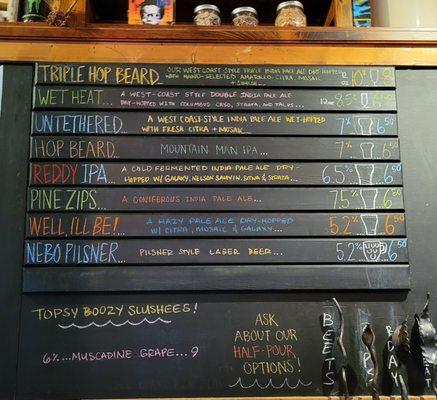 TRIPLE HOP BEARD... OUR WEST COAST STYLE TRIPLE INDIA PALE ALE DRY-HOPPED
WITH HAND-SELECTED AMARILLO, CITRA, MOSAIC
& SIMCOE...
WET HEAT... A WEST-COAST STYLE DOUBLE INDIA PALE ALE
DRY-HOPPED WITH COLUMBUS CRYO, STRATA, AND TALUS...
UNTETHERED... A WEST COAST-STYLE INDIA PALE ALE WET-HOPPED
WITH FRESH CITRA + MOSAIC... 7% 6.50
HOP BEARD... MOUNTAIN MAN IPA... 7%
REDDY IPA... A COLD FERMENTED INDIA PALE ALE DRY-
HOPPED W/ GALAXY, NELSON SAUVIN, CITRA & STRATA... 6.5% 6.50
PINE ZIPS... A CONIFEROUS INDIA PALE ALE... 7.5% 6.50
WELL, I'LL BE!... A HAZY PALE ALE DRY-HOPPED
W/ CITRA, MOSAIC & GALAXY... 5.2% 6.50
NEBO PILSNER... PILSNER STYLE LAGER BEER... 5.2% 6.50
TOPSY BOOZY SLUSHEES!
6%....MUSCADINE GRAPE...9
ASK
ABOUT OUR
HALF-POUR
OPTIONS!
BEETS